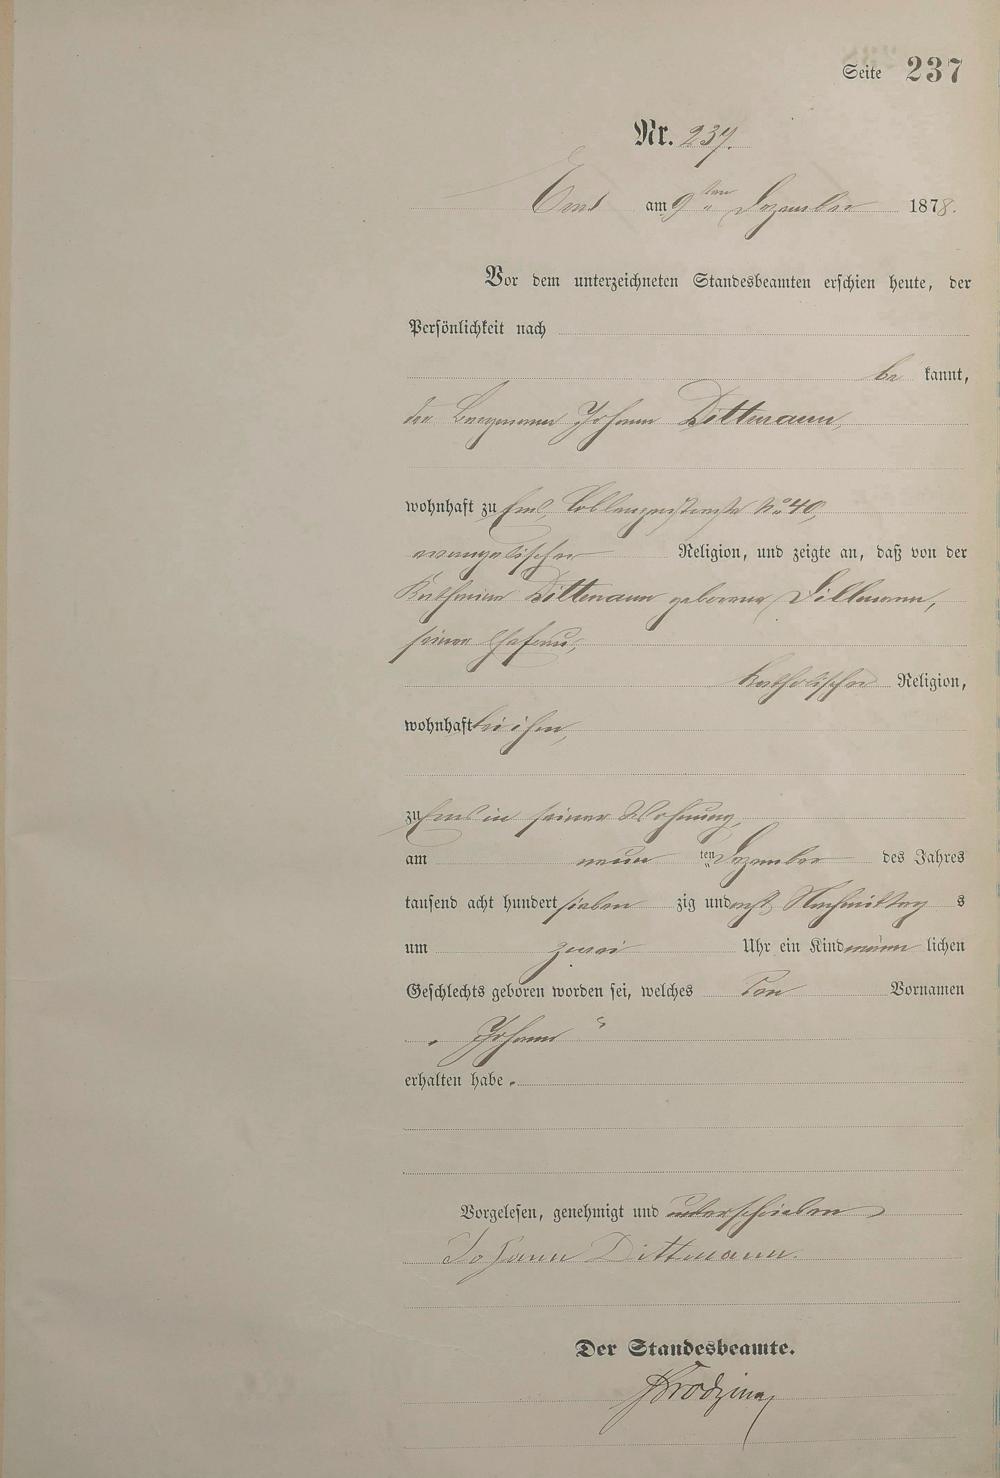 Seite 237
Nr. 237.
Ems am 9ten Dezember 1878.
Vor dem unterzeichneten Standesbeamten erschien heute, der
Persönlichkeit nach
be kannt,
der Bergmann Johann Dittmann,
wohnhaft zu Ems, Coblenzerstraße No 40,
evangelischer Religion, und zeigte an, daß von der
Katharina Dittmann geborene Dillmann,
seiner Ehefrau,
katholischer Religion,
wohnhaft bei ihm,
zu Ems in seiner Wohnung,
am neun ten Dezember des Jahres
tausend acht hundert sieben zig und acht Nachmittag s
um zwei Uhr ein Kind männ lichen
Geschlechts geboren worden sei, welches den Vornamen
„Johann“
erhalten habe.
Vorgelesen, genehmigt und unterschrieben
Johann Dittmann.
Der Standesbeamte.